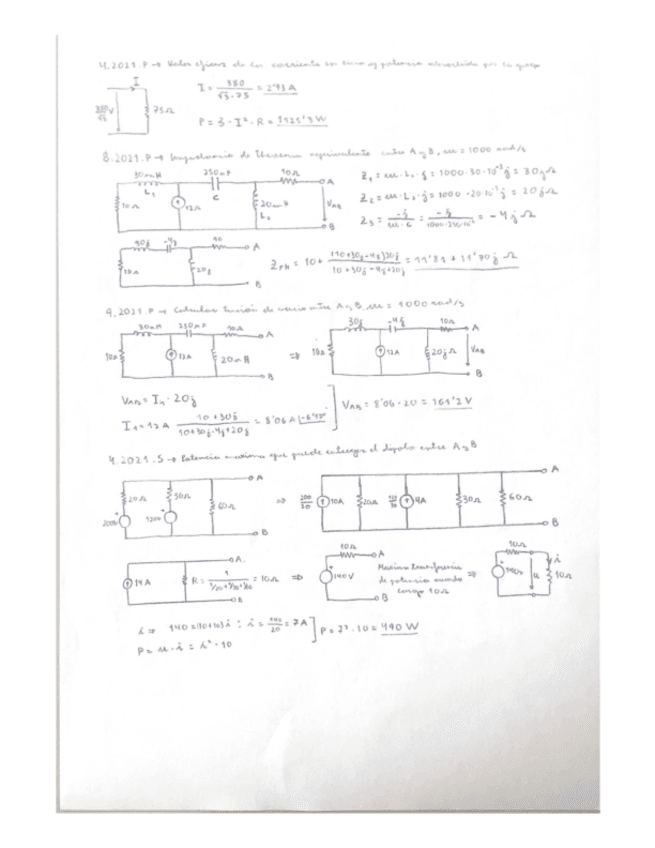 4.2021.P → Valor eficaz de la corriente en línea y potencia absorbida por la carga
I
380/√3 V
75Ω
I = 380/(√3·75) = 2'93 A
P = 3 · I² · R = 1925'3 W
8.2021.P → Impedancia de Thevenin equivalente entre A y B, ω = 1000 rad/s
30mH 250μF 10Ω A
L₁ C
10Ω 12A 20mH V_AB
L₂ B
Z₁ = ω·L₁·j = 1000·30·10⁻³j = 30jΩ
Z₂ = ω·L₂·j = 1000·20·10⁻³j = 20jΩ
Z₃ = -j/(ω·C) = -j/(1000·250·10⁻⁶) = -4jΩ
30j -4j 10 A
10Ω 20j B
= 11'81 + 11'70j Ω
9.2021.P → Calcular tensión de vacío entre A y B, ω = 1000 rad/s
30mH 250μF 10Ω A
10Ω 12A 20mH B
⇒
30j -4j 10Ω A
10Ω 12A 20jΩ V_AB B
V_AB = I₁ · 20j
I₁ = 12A (10+30j)/(10+30j-4j+20j) = 8'06A
V_AB = 8'06 · 20 = 161'2 V
4.2021.S → Potencia máxima que puede entregar el dipolo entre A y B
20Ω 30Ω 60Ω A
200V 120V B
⇒
200/20 10A 20Ω 120/30 4A 30Ω 60Ω A
B
14A R = 1/(1/20+1/30+1/60) = 10Ω A
B
⇒
10Ω A
140V B
Maxima transferencia
de potencia cuando
carga 10Ω
⇒
10Ω i
140V u 10Ω
i ⇒ 140 = (10+10)i ; i = 140/20 = 7A
P = u·i = i²·10
P = 7²·10 = 490 W